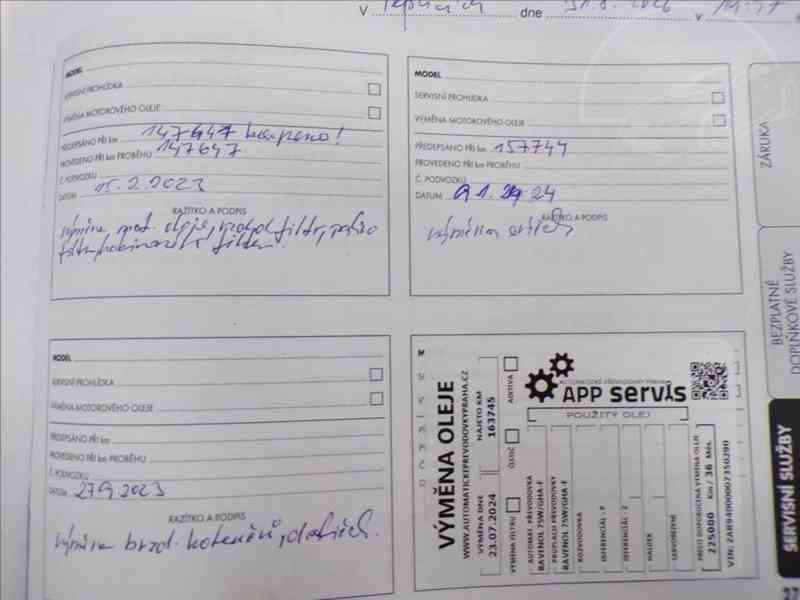 v Teplicích dne 31.8.2026 v
MODEL
SERVISNÍ PROHLÍDKA
VÝMĚNA MOTOROVÉHO OLEJE
PŘEDEPSÁNO PŘI km 147647 koupeno!
PROVEDENO PŘI KM PROBĚHU 147647
Č. PODVOZKU
DATUM 15.2.2023
RAZÍTKO A PODPIS
výměna mot. oleje, vzduch. filtr,
filtru,
MODEL
SERVISNÍ PROHLÍDKA
VÝMĚNA MOTOROVÉHO OLEJE
PŘEDEPSÁNO PŘI km 157744
PROVEDENO PŘI KM PROBĚHU
Č. PODVOZKU
DATUM 24
RAZÍTKO A PODPIS
výměna
MODEL
SERVISNÍ PROHLÍDKA
VÝMĚNA MOTOROVÉHO OLEJE
PŘEDEPSÁNO PŘI km
PROVEDENO PŘI KM PROBĚHU
Č. PODVOZKU
DATUM 27.9.2023
RAZÍTKO A PODPIS
výměna brzd. kotoučů,
VÝMĚNA OLEJE
WWW.AUTOMATICKEPREVODOVKYPRAHA.CZ
VÝMĚNA DNE NAJETO KM
23.07.2024 163745
VÝMĚNA FILTRU ČISTIČ ADITIVA
AUTOMATICKÉ PŘEVODOVKY PRAHA
APP servis
POUŽITÝ OLEJ
AUTOMAT. PŘEVODOVKA
RAVENOL 75W/GHA-F
PROPLACH PŘEVODOVKY
RAVENOL 75W/GHA-F
ROZVODOVKA
DIFERENCIÁL - P
DIFERENCIÁL - Z
HALDEX
SERVOŘÍZENÍ
PŘÍŠTÍ DOPORUČENÁ VÝMĚNA OLEJE
225000 Km / 36 Měs.
VIN: ZAR94000007350290
ZÁRUKA
BEZPLATNÉ
DOPLŇKOVÉ SLUŽBY
SERVISNÍ SLUŽBY
27